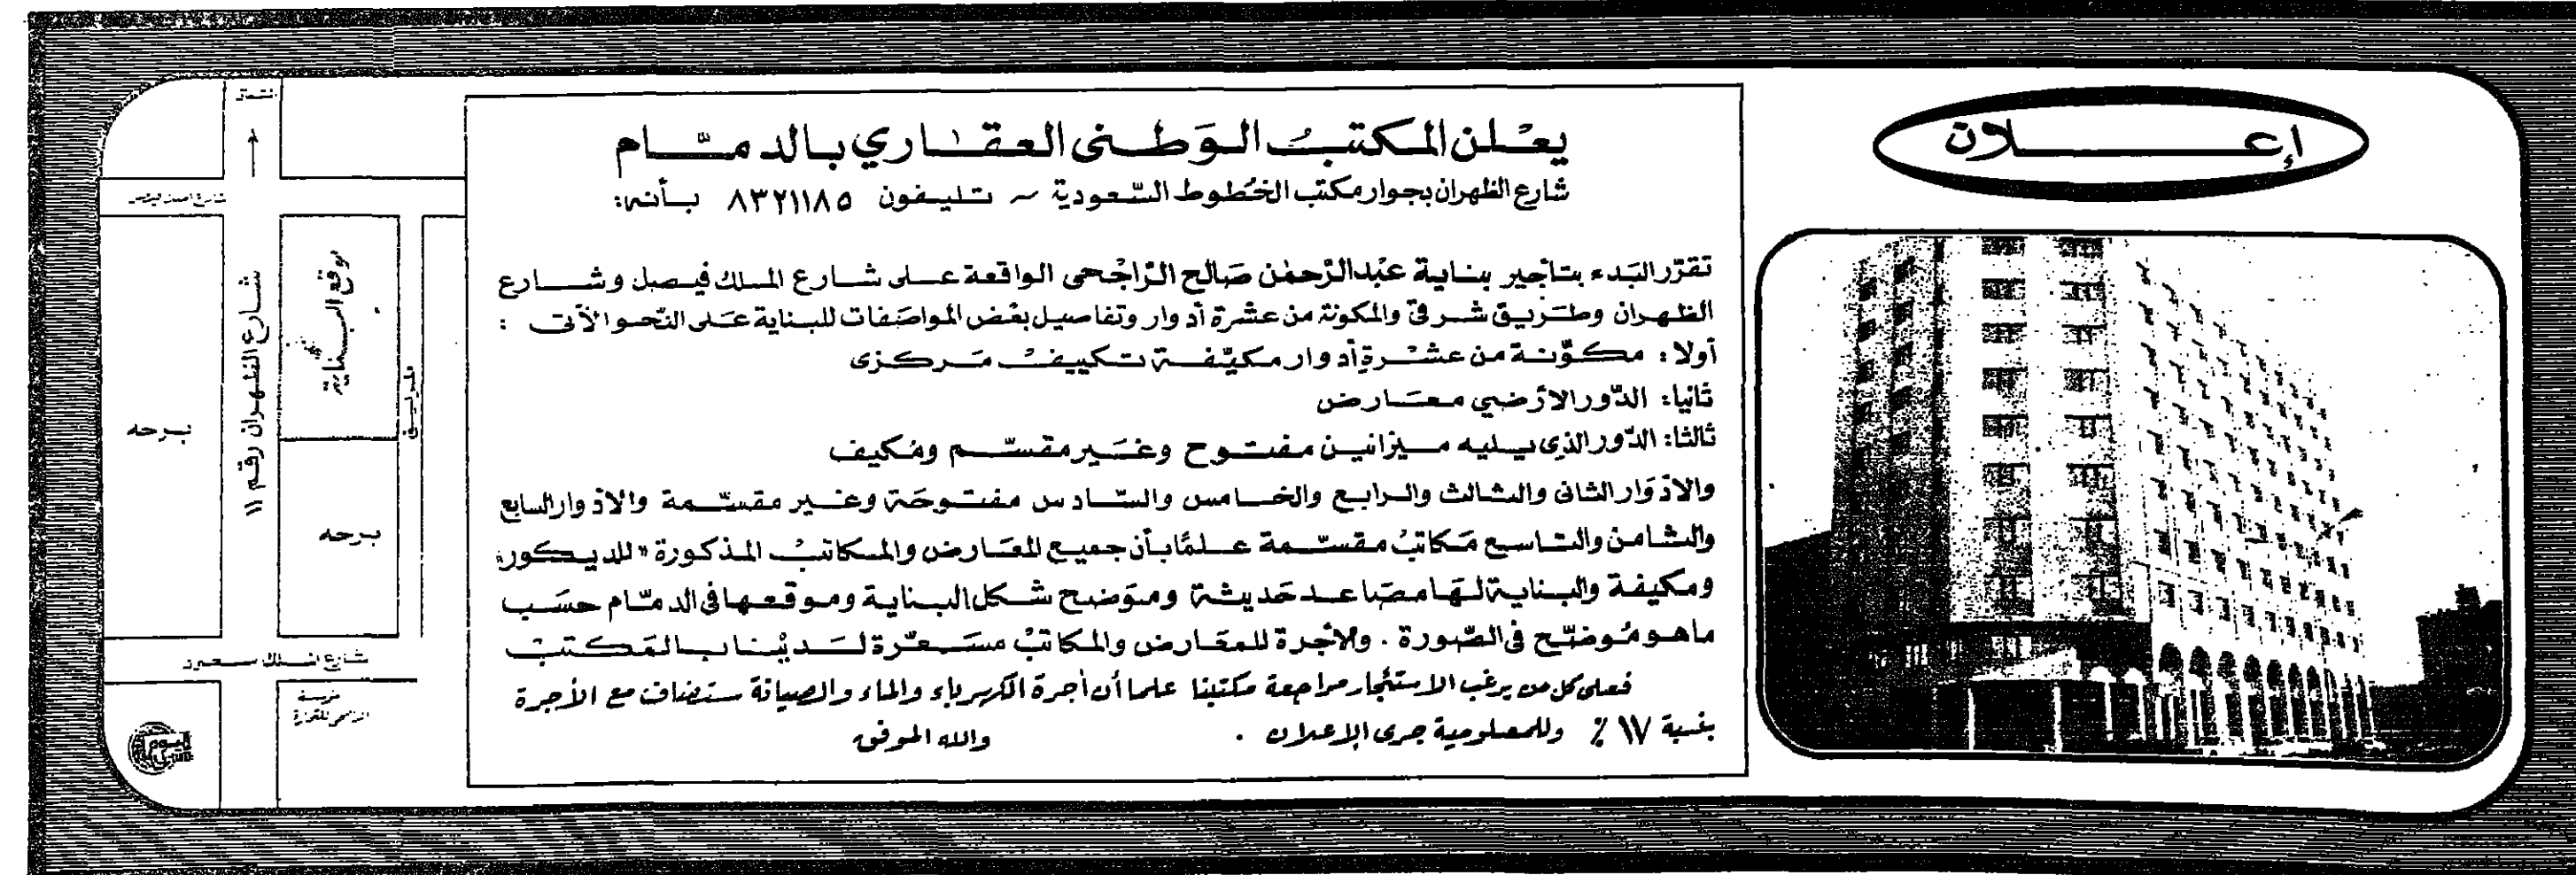 إعلان
يعلن المكتب الوطنى العقارى بالدمام
شارع الظهران بجوار مكتب الخطوط السعودية ~ تليفون ٨٣٢١١٨٥ بأنه:
تقرر البدء بتأجير بناية عبدالرحمن صالح الراجحى الواقعة على شارع الملك فيصل وشارع
الظهران وطريق شرقى والمكونة من عشرة أدوار وتفاصيل بعض المواصفات للبناية على النحو الآتى :
أولا : مكونة من عشرة أدوار مكيفة تكييف مركزى
ثانيا: الدور الارضي معارض
ثالثا: الدور الذى يليه ميزانين مفتوح وغير مقسم ومكيف
والادوار الثانى والثالث والرابع والخامس والسادس مفتوحة وغير مقسمة والادوار السابع
والثامن والتاسع مكاتب مقسمة علما بأن جميع المعارض والمكاتب المذكورة "للديكور"
ومكيفة والبناية لها مصاعد حديثة وموضح شكل البناية وموقعها فى الدمام حسب
ماهو موضح فى الصورة . والأجرة للمعارض والمكاتب مسعرة لدينا بالمكتب
فعلى كل من يرغب الاستئجار مراجعة مكتبنا علما أن أجرة الكهرباء والماء والصيانة ستضاف مع الأجرة
بنسبة ١٧ ٪ وللمعلومية جرى الإعلان .
والله الموفق
موقع البناية
شارع الظهران رقم ١١
برحه
برحه
شارع الملك سعود
اليوم